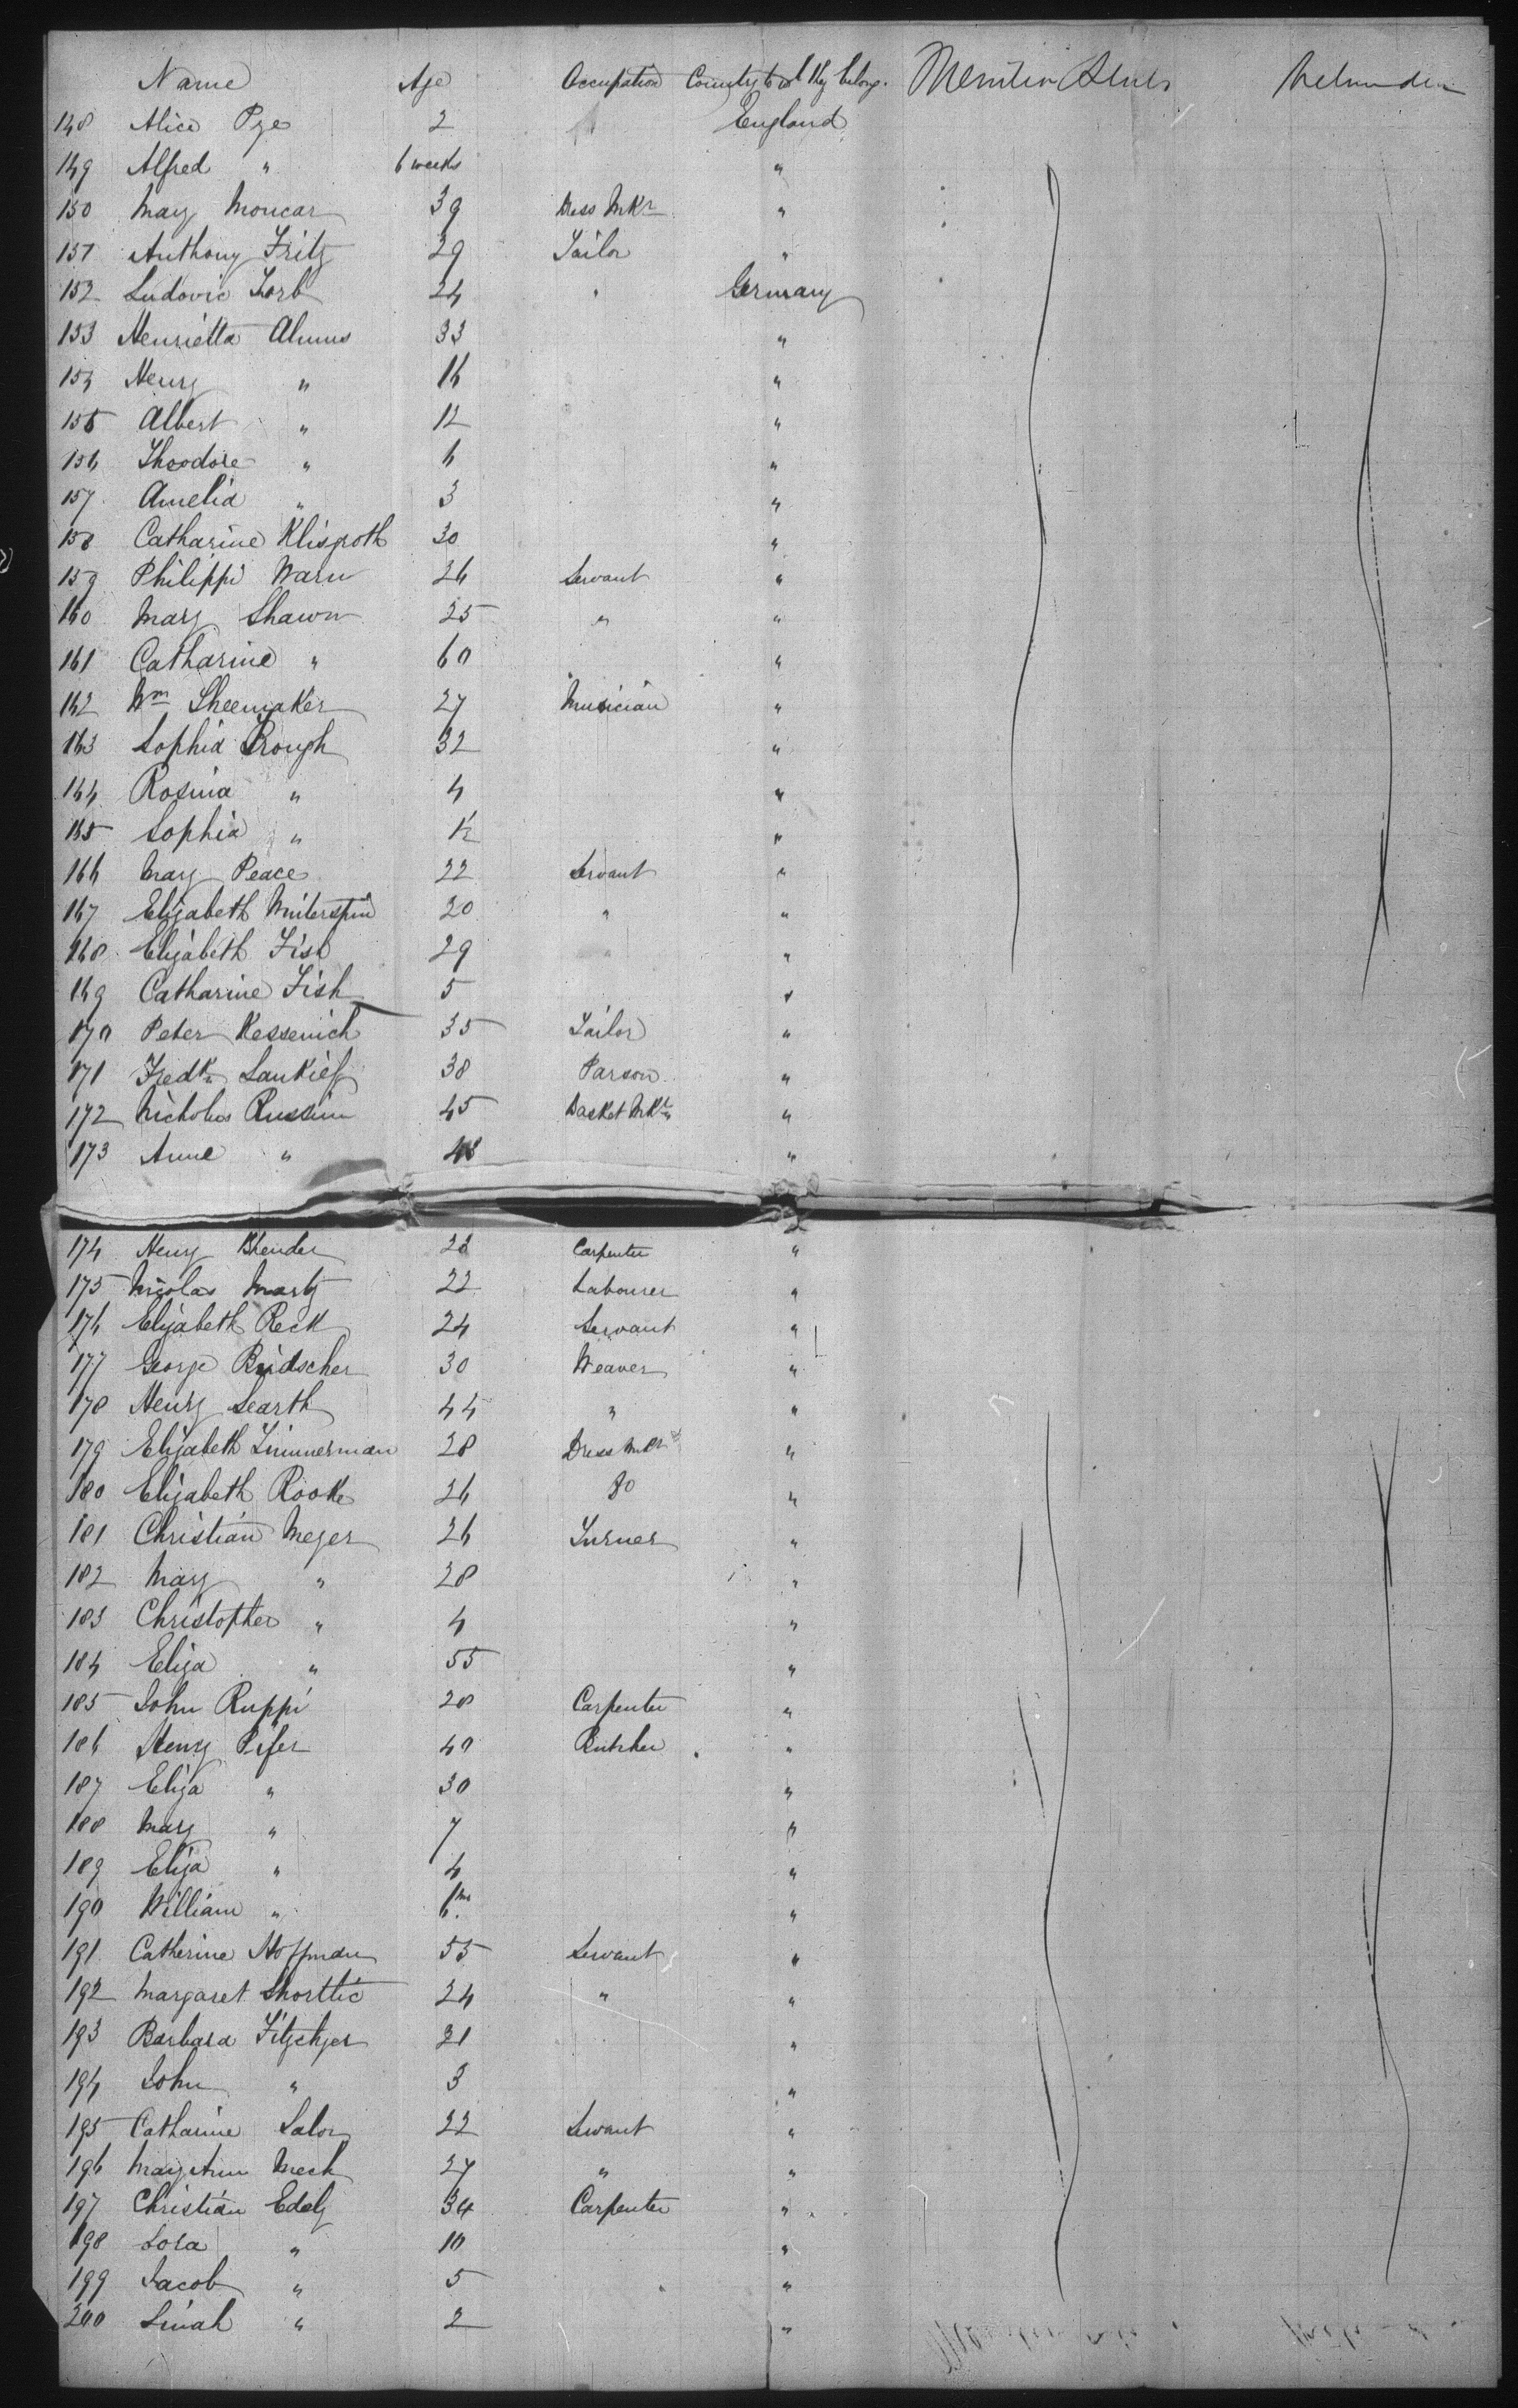 Name Age Occupation Country to wh they belong.
148 Alice Pye 2 England
149 Alfred " 6 weeks "
150 Mary Moncar 39 Dress Mkr "
151 Anthony Fritz 29 Tailor "
152 Ludovic Torb 24 " Germany
153 Henrietta Ahmus 33 "
154 Henry " 16 "
155 Albert " 12 "
156 Theodore " 6 "
157 Amelia " 3 "
158 Catharine Klisproth 30 "
159 Philippi Warn 26 Servant "
160 Mary Shawn 25 " "
161 Catharine " 60 "
162 Wm Sheemaker 27 Musician "
163 Sophia Brough 32 "
164 Rosina " 4 "
165 Sophia " ½ "
166 Mary Peace 22 Servant "
167 Elizabeth 20 " "
168 Elizabeth Fish 29 "
169 Catharine Fish 5 "
170 Peter Kessenich 35 Tailor "
171 Fredk 38 Parson "
172 Nicholas Russim 45 Basket Mkr "
173 Anne " 48 "
174 Henry 28 Carpenter "
175 Nicolas Martz 22 Labourer "
176 Elizabeth Reck 24 Servant "
177 George Bridscher 30 Weaver "
178 Henry Searth 44 " "
179 Elizabeth Zimmerman 28 Dress Mkr "
180 Elizabeth Rooke 26 Do "
181 Christian Meyer 26 Turner "
182 Mary " 28 "
183 Christopher " 4 "
184 Eliza " 55 "
185 John Ruppi 28 Carpenter "
186 Henry Pifer 40 Butcher "
187 Eliza " 30 "
188 Mary " 7 "
189 Eliza " 4 "
190 William " 6 ms "
191 Catherine Hoffman 55 Servant "
192 Margaret Shorttic 24 " "
193 Barbara 21 "
194 John " 3 "
195 Catharine Salor 22 Servant "
196 Mary Ann Meck 27 " "
197 Christian Edelz 34 Carpenter "
198 Lora " 10 "
199 Jacob " 5 "
200 " 2 "